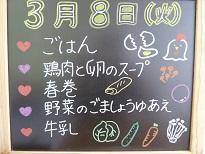 3月8日(火)
ごはん
鶏肉と卵のスープ
春巻
野菜のごましょうゆあえ
牛乳